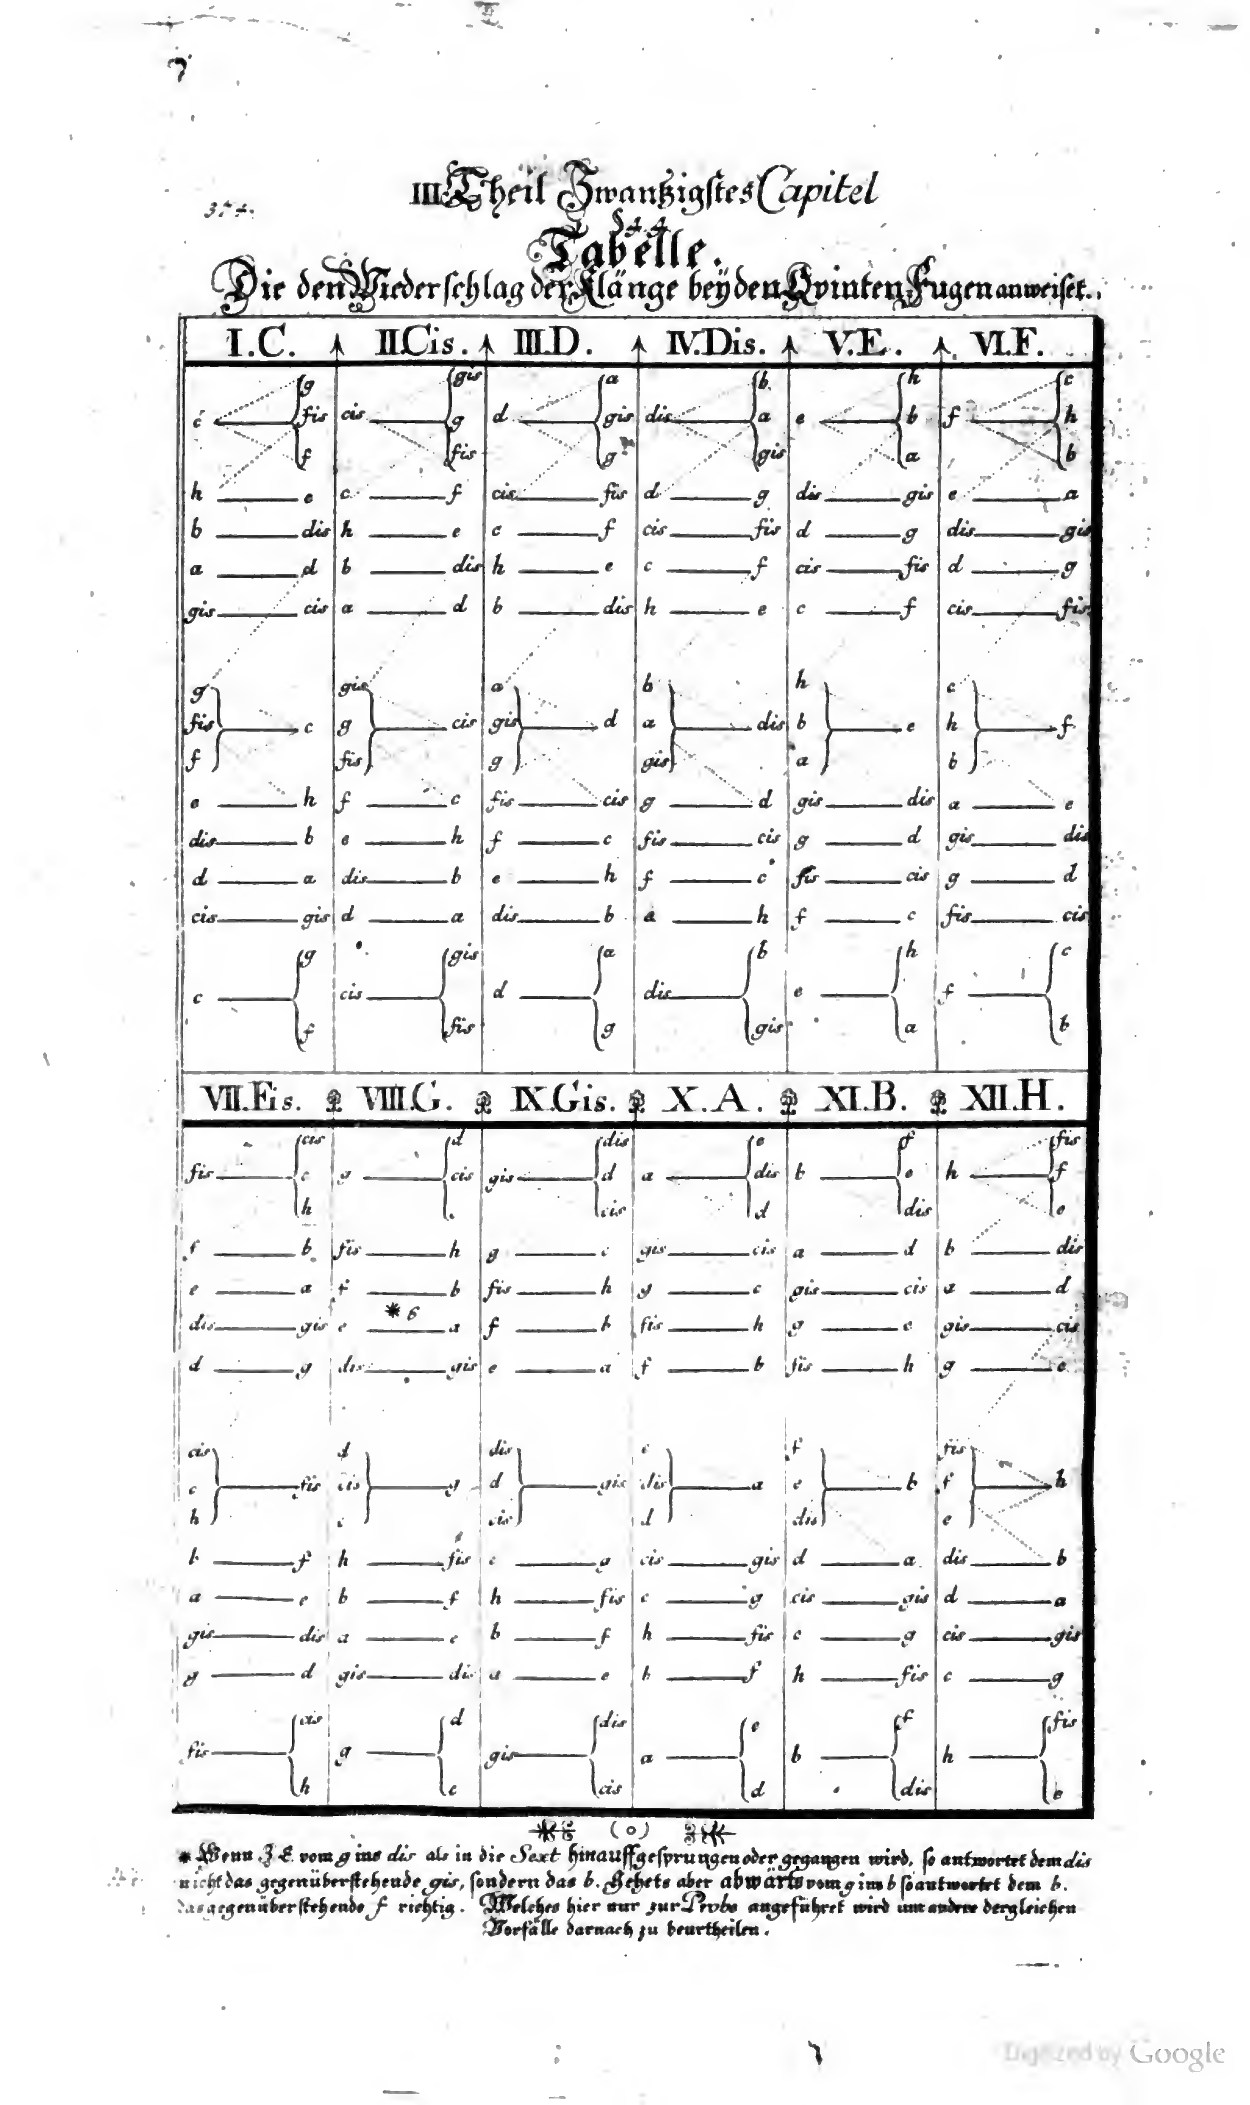 374.
III Theil Zwantzigstes Capitel
§ 44
Tabelle.
Die den Wiederschlag der Klänge bey den Qvinten-Fugen anweiset.
I.C. II.Cis. III.D. IV.Dis. V.E. VI.F.
g gis a b h c
c fis cis g d gis dis a e b f h
f fis g gis a b
h e c f cis fis d g dis gis e a
b dis h e c f cis fis d g dis gis
a d b dis h e c f cis fis d g
gis cis a d b dis h e c f cis fis
g gis a b h c
fis c g cis gis d a dis b e h f
f fis g gis a b
e h f c fis cis g d gis dis a e
dis b e h f c fis cis g d gis dis
d a dis b e h f c fis cis g d
cis gis d a dis b h f c fis cis
g gis a b h c
c cis d dis e f
f fis g gis a b
VII.Fis. VIII.G. IX.Gis. X.A. XI.B. XII.H.
cis d dis e f fis
fis c g cis gis d a dis b e h f
h cis d dis e
f b fis h g c gis cis a d b dis
e a f b fis h g c gis cis a d
* 6
dis gis e a f b fis h g c gis cis
d g dis gis e a f b fis h g c
cis d dis e f fis
c fis cis g d gis dis a e b f h
h c cis d dis e
b f h fis c g cis gis d a dis b
a e b f h fis c g cis gis d a
gis dis a e b f h fis c g cis gis
g d gis dis a e b f h fis c g
cis d dis e f fis
fis g gis a b h
h c cis d dis e
(o)
* Wenn Z. E. vom g ins dis als in die Sext hinauffgesprungen oder gegangen wird, so antwortet dem dis
nicht das gegenüberstehende gis, sondern das b. Gehets aber abwärts vom g ins b so antwortet dem b.
das gegenüberstehende f richtig. Welches hier nur zur Probe angeführet wird um andere dergleichen
Vorfälle darnach zu beurtheilen.
Digitized by Google